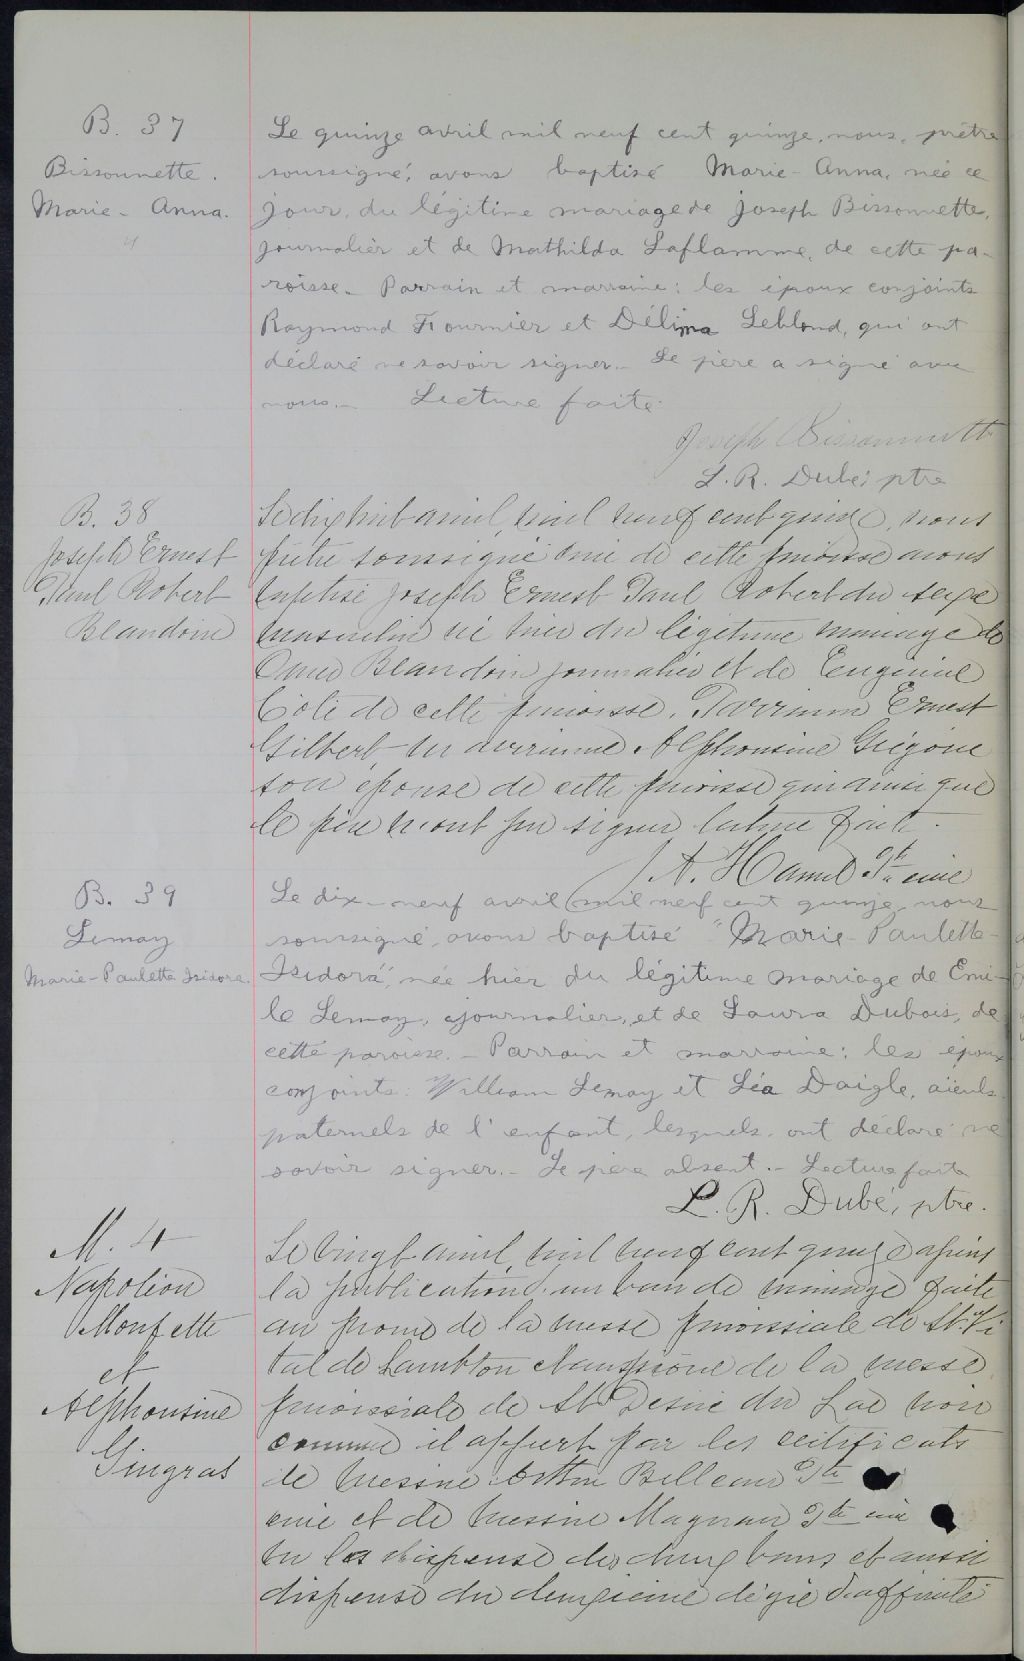 B. 37
Bissonnette.
Marie-Anna.
Le quinze avril mil neuf cent quinze, nous, prêtre
soussigné, avons baptisé Marie-Anna, née ce
jour, du légitime mariage de Joseph Bissonnette,
journalier et de Mathilda Laflamme, de cette pa-
roisse. Parrain et marraine: les époux conjoints
Raymond Fournier et Délima Leblond, qui ont
déclaré ne savoir signer.- Le père a signé avec
nous.- Lecture faite.
Joseph Bissonnette
L. R. Dubé, ptre
B. 38
Joseph Ernest
Paul Robert
Beaudoin
Le dix huit avril, mil neuf cent quinze, nous
prêtre soussigné curé de cette paroisse avons
baptisé Joseph Ernest Paul Robert du sexe
masculin né hier du légitime mariage de
Beaudoin journalier et de
Côté de cette paroisse. Parrain Ernest
Gilbert, marraine Alphonsine Grégoire
son épouse de cette paroisse qui ainsi que
le père n'ont pu signer lecture faite.
J. A. Hamel Ptre curé
B. 39
Lemay
Marie-Paulette Isidora.
Le dix-neuf avril mil neuf cent quinze, nous
soussigné, avons baptisé "Marie-Paulette-
Isidora", née hier du légitime mariage de Emi-
le Lemay, journalier, et de Laura Dubois, de
cette paroisse.- Parrain et marraine: les époux
conjoints: William Lemay et Léa Daigle, aïeuls
paternels de l'enfant, lesquels, ont déclaré ne
savoir signer.- Le père absent.- Lecture faite
L. R. Dubé, ptre.
M. 4
Napoléon
Monfette
et
Alphonsine
Gingras
Le vingt avril, mil neuf cent quinze après
la publication d'un ban de mariage faite
au prône de la messe paroissiale de St. Vi
tal de Lambton et au prône de la messe
paroissiale de St Désiré du Lac noir
comme il appert par les certificats
de Messire Belleau Ptre
curé et de Messire Magnan Ptre curé
vu la dispense des deux bans et aussi
dispense du deuxième dégré d'affinité